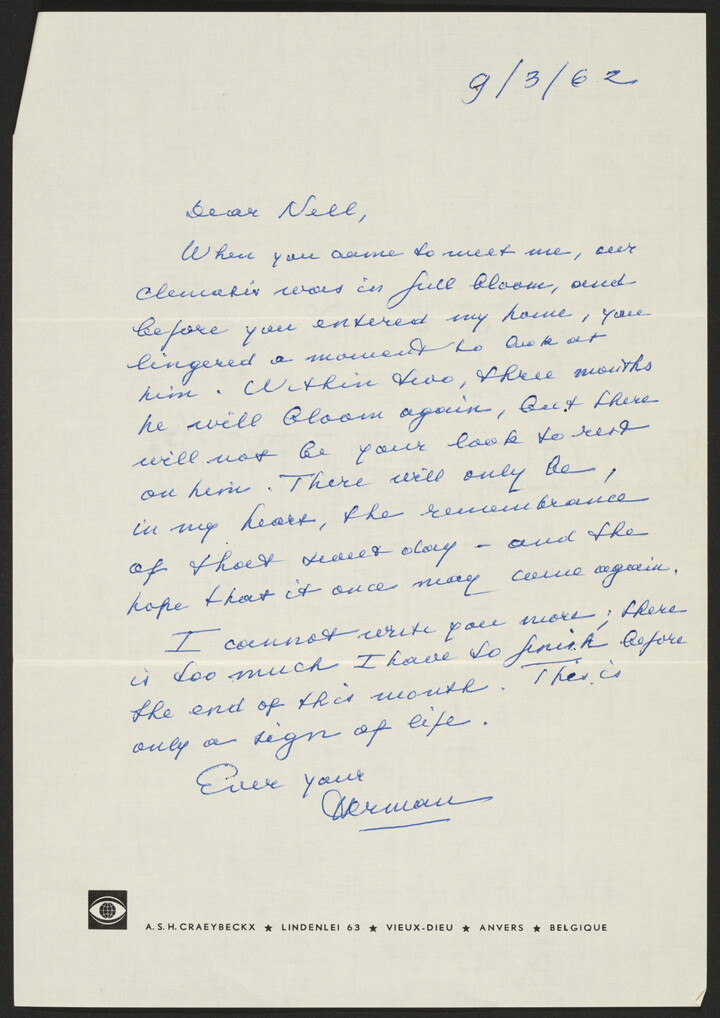 9/3/62
Dear Nell,
When you came to meet me, our
clematis was in full bloom, and
before you entered my home, you
lingered a moment to look at
him. Within two, three months
he will bloom again, but there
will not be your look to rest
on him. There will only be,
in my heart, the remembrance
of that sweet day – and the
hope that it once may come again.
I cannot write you more; there
is too much I have to finish before
the end of this month. This is
only a sign of life.
Ever your
Herman
A.S.H. CRAEYBECKX ★ LINDENLEI 63 ★ VIEUX-DIEU ★ ANVERS ★ BELGIQUE